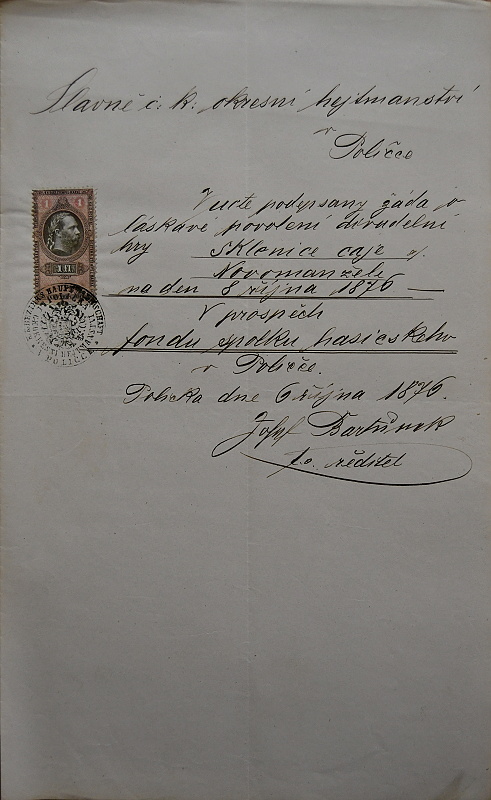 Slavné c. k. okresní hejtmanství
v
Poličce
V uctě podypsaný žádá o
láskavé povolení divadelní
hry Sklenice čaje a
Novomanželé
na den 8 října 1876 —
V prospěch
fondu spolku hasicskeho
v Poličce.
Polička dne 6 října 1876.
Josef Bartůnek
ředitel
1 1